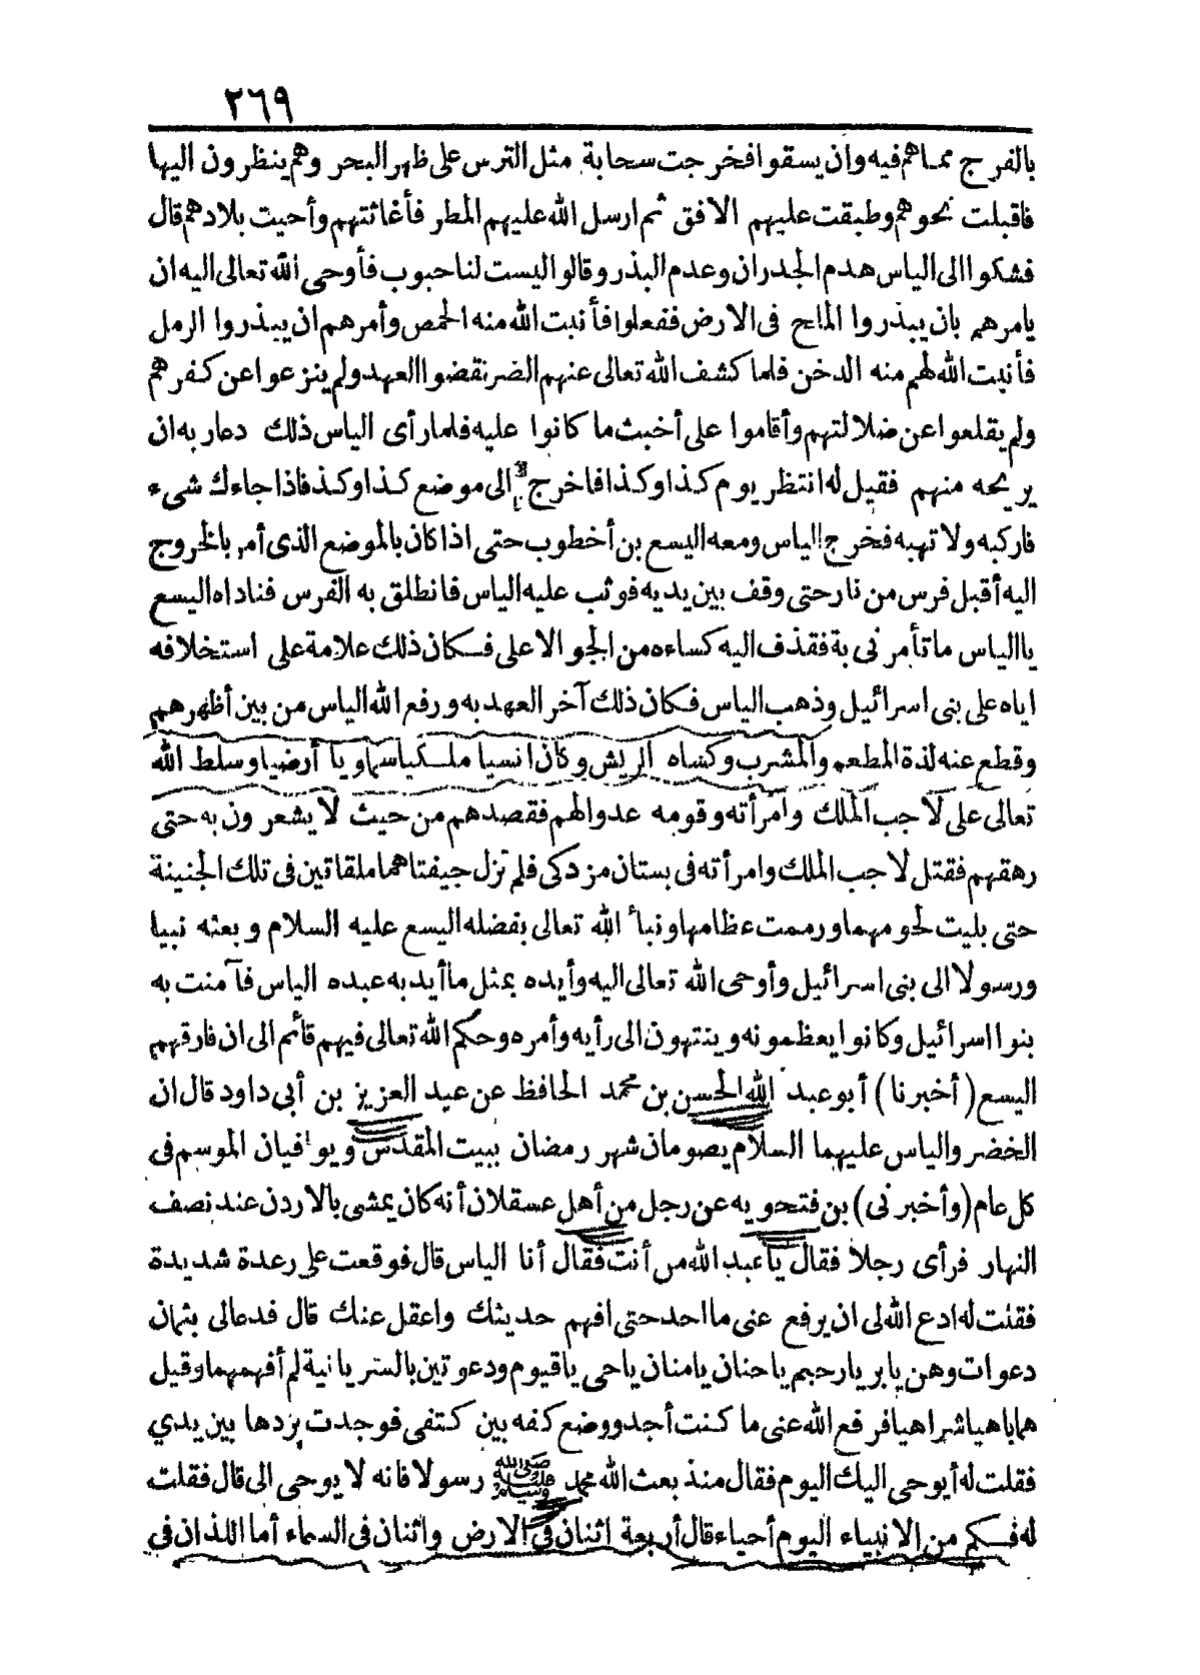 ٢٦٩
بالفرج مما هم فيه وان يسقوا فخرجت سحابة مثل الترس على ظهر البحر وهم ينظرون اليها
فاقبلت نحوهم وطبقت عليهم الافق ثم ارسل الله عليهم المطر فأغاثتهم وأحيت بلادهم قال
فشكوا الى الياس هدم الجدران وعدم البذر وقالوا ليست لنا حبوب فأوحى الله تعالى اليه ان
يامرهم بان يبذروا الملح فى الارض ففعلوا فأنبت الله منه الحمص وأمرهم ان يبذروا الرمل
فأنبت الله لهم منه الدخن فلما كشف الله تعالى عنهم الضر نقضوا العهد ولم ينزعوا عن كفرهم
ولم يقلعوا عن ضلالتهم وأقاموا على أخبث ما كانوا عليه فلما رأى الياس ذلك دعا ربه ان
يريحه منهم فقيل له انتظر يوم كذا وكذا فاخرج الى موضع كذا وكذ فاذا جاءك شىء
فاركبه ولا تهبه فخرج الياس ومعه اليسع بن أخطوب حتى اذا كان بالموضع الذى أمر بالخروج
اليه أقبل فرس من نار حتى وقف بين يديه فوثب عليه الياس فانطلق به الفرس فناداه اليسع
يا الياس ما تأمرنى بة فقذف اليه كساءه من الجو الاعلى فكان ذلك علامة على استخلافه
اياه على بنى اسرائيل وذهب الياس فكان ذلك آخر العهد به ورفع الله الياس من بين أظهرهم
وقطع عنه لذة المطعم والمشرب وكساه الريش وكان انسيا ملكيا سماويا أرضيا وسلط الله
تعالى على لاجب الملك وامرأته وقومه عدوا لهم فقصدهم من حيث لا يشعرون به حتى
رهقهم فقتل لاجب الملك وامرأته فى بستان مزدكى فلم تزل جيفتاهما ملقاتين فى تلك الجنينة
حتى بليت لحومهما ورممت عظامها ونبأ الله تعالى بفضله اليسع عليه السلام وبعثه نبيا
ورسولا الى بنى اسرائيل وأوحى الله تعالى اليه وأيده بمثل ما أيد به عبده الياس فآمنت به
بنوا اسرائيل وكانوا يعظمونه وينتهون الى رأيه وأمره وحكم الله تعالى فيهم قائم الى ان فارقهم
اليسع (أخبرنا) أبو عبد الله الحسن بن محمد الحافظ عن عبد العزيز بن أبى داود قال ان
الخضر والياس عليهما السلام يصومان شهر رمضان ببيت المقدس ويوافيان الموسم فى
كل عام (وأخبرنى) بن فتحويه عن رجل من أهل عسقلان أنه كان يمشى بالاردن عند نصف
النهار فرأى رجلا فقال يا عبد الله من أنت فقال أنا الياس قال فوقعت على رعدة شديدة
فقلت له ادع الله لى ان يرفع عنى ما احد حتى افهم حديثك واعقل عنك قال فدعا لى بثمان
دعوات وهن يا بر يا رحيم يا حنان يا منان يا حى يا قيوم ودعوتين بالسريانية لم أفهمهما وقيل
هما باهيا شراهيا فرفع الله عنى ما كنت أجد ووضع كفه بين كتفى فوجدت بردها بين يدي
فقلت له أيوحى اليك اليوم فقال منذ بعث الله محمد ﷺ رسولا فانه لا يوحى الى قال فقلت
له فكم من الانبياء اليوم أحياء قال أربعة اثنان فى الارض واثنان فى السماء أما اللذان فى